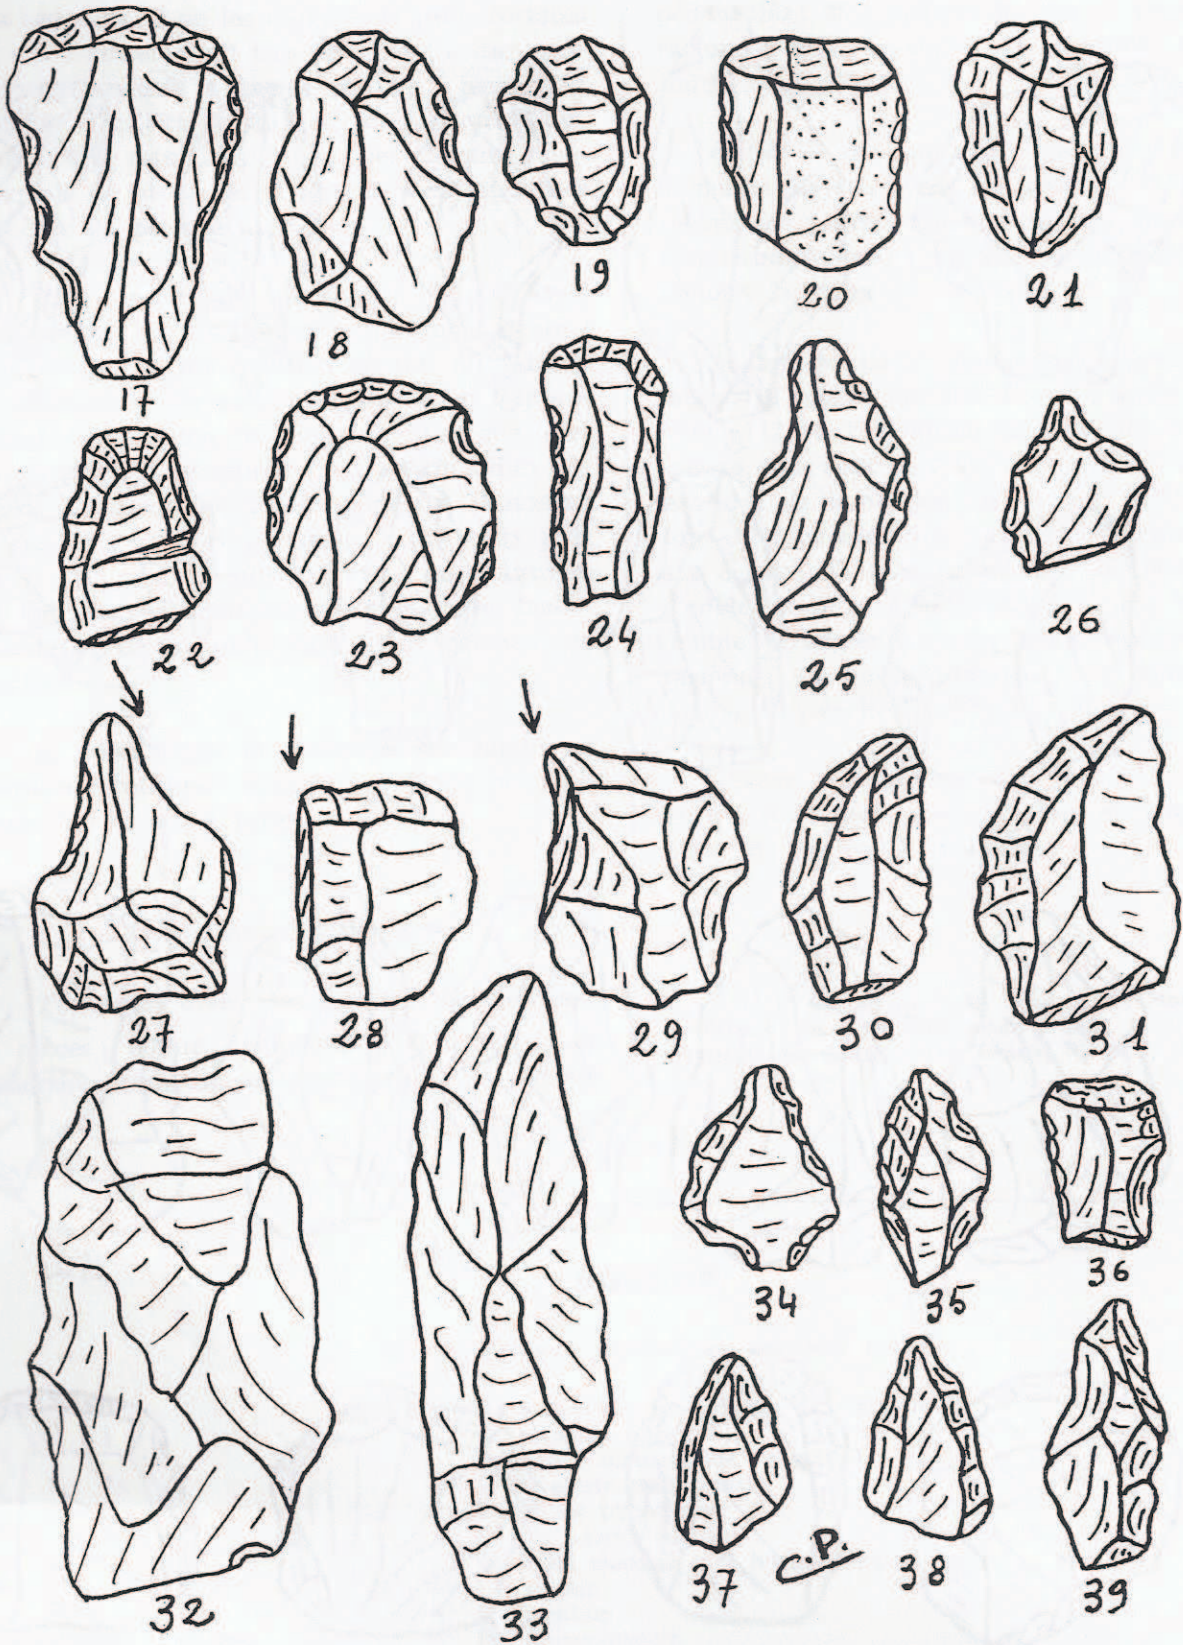 17
18
19
20
21
22
23
24
25
26
27
28
29
30
31
32
33
34
35
36
37
C.P.
38
39